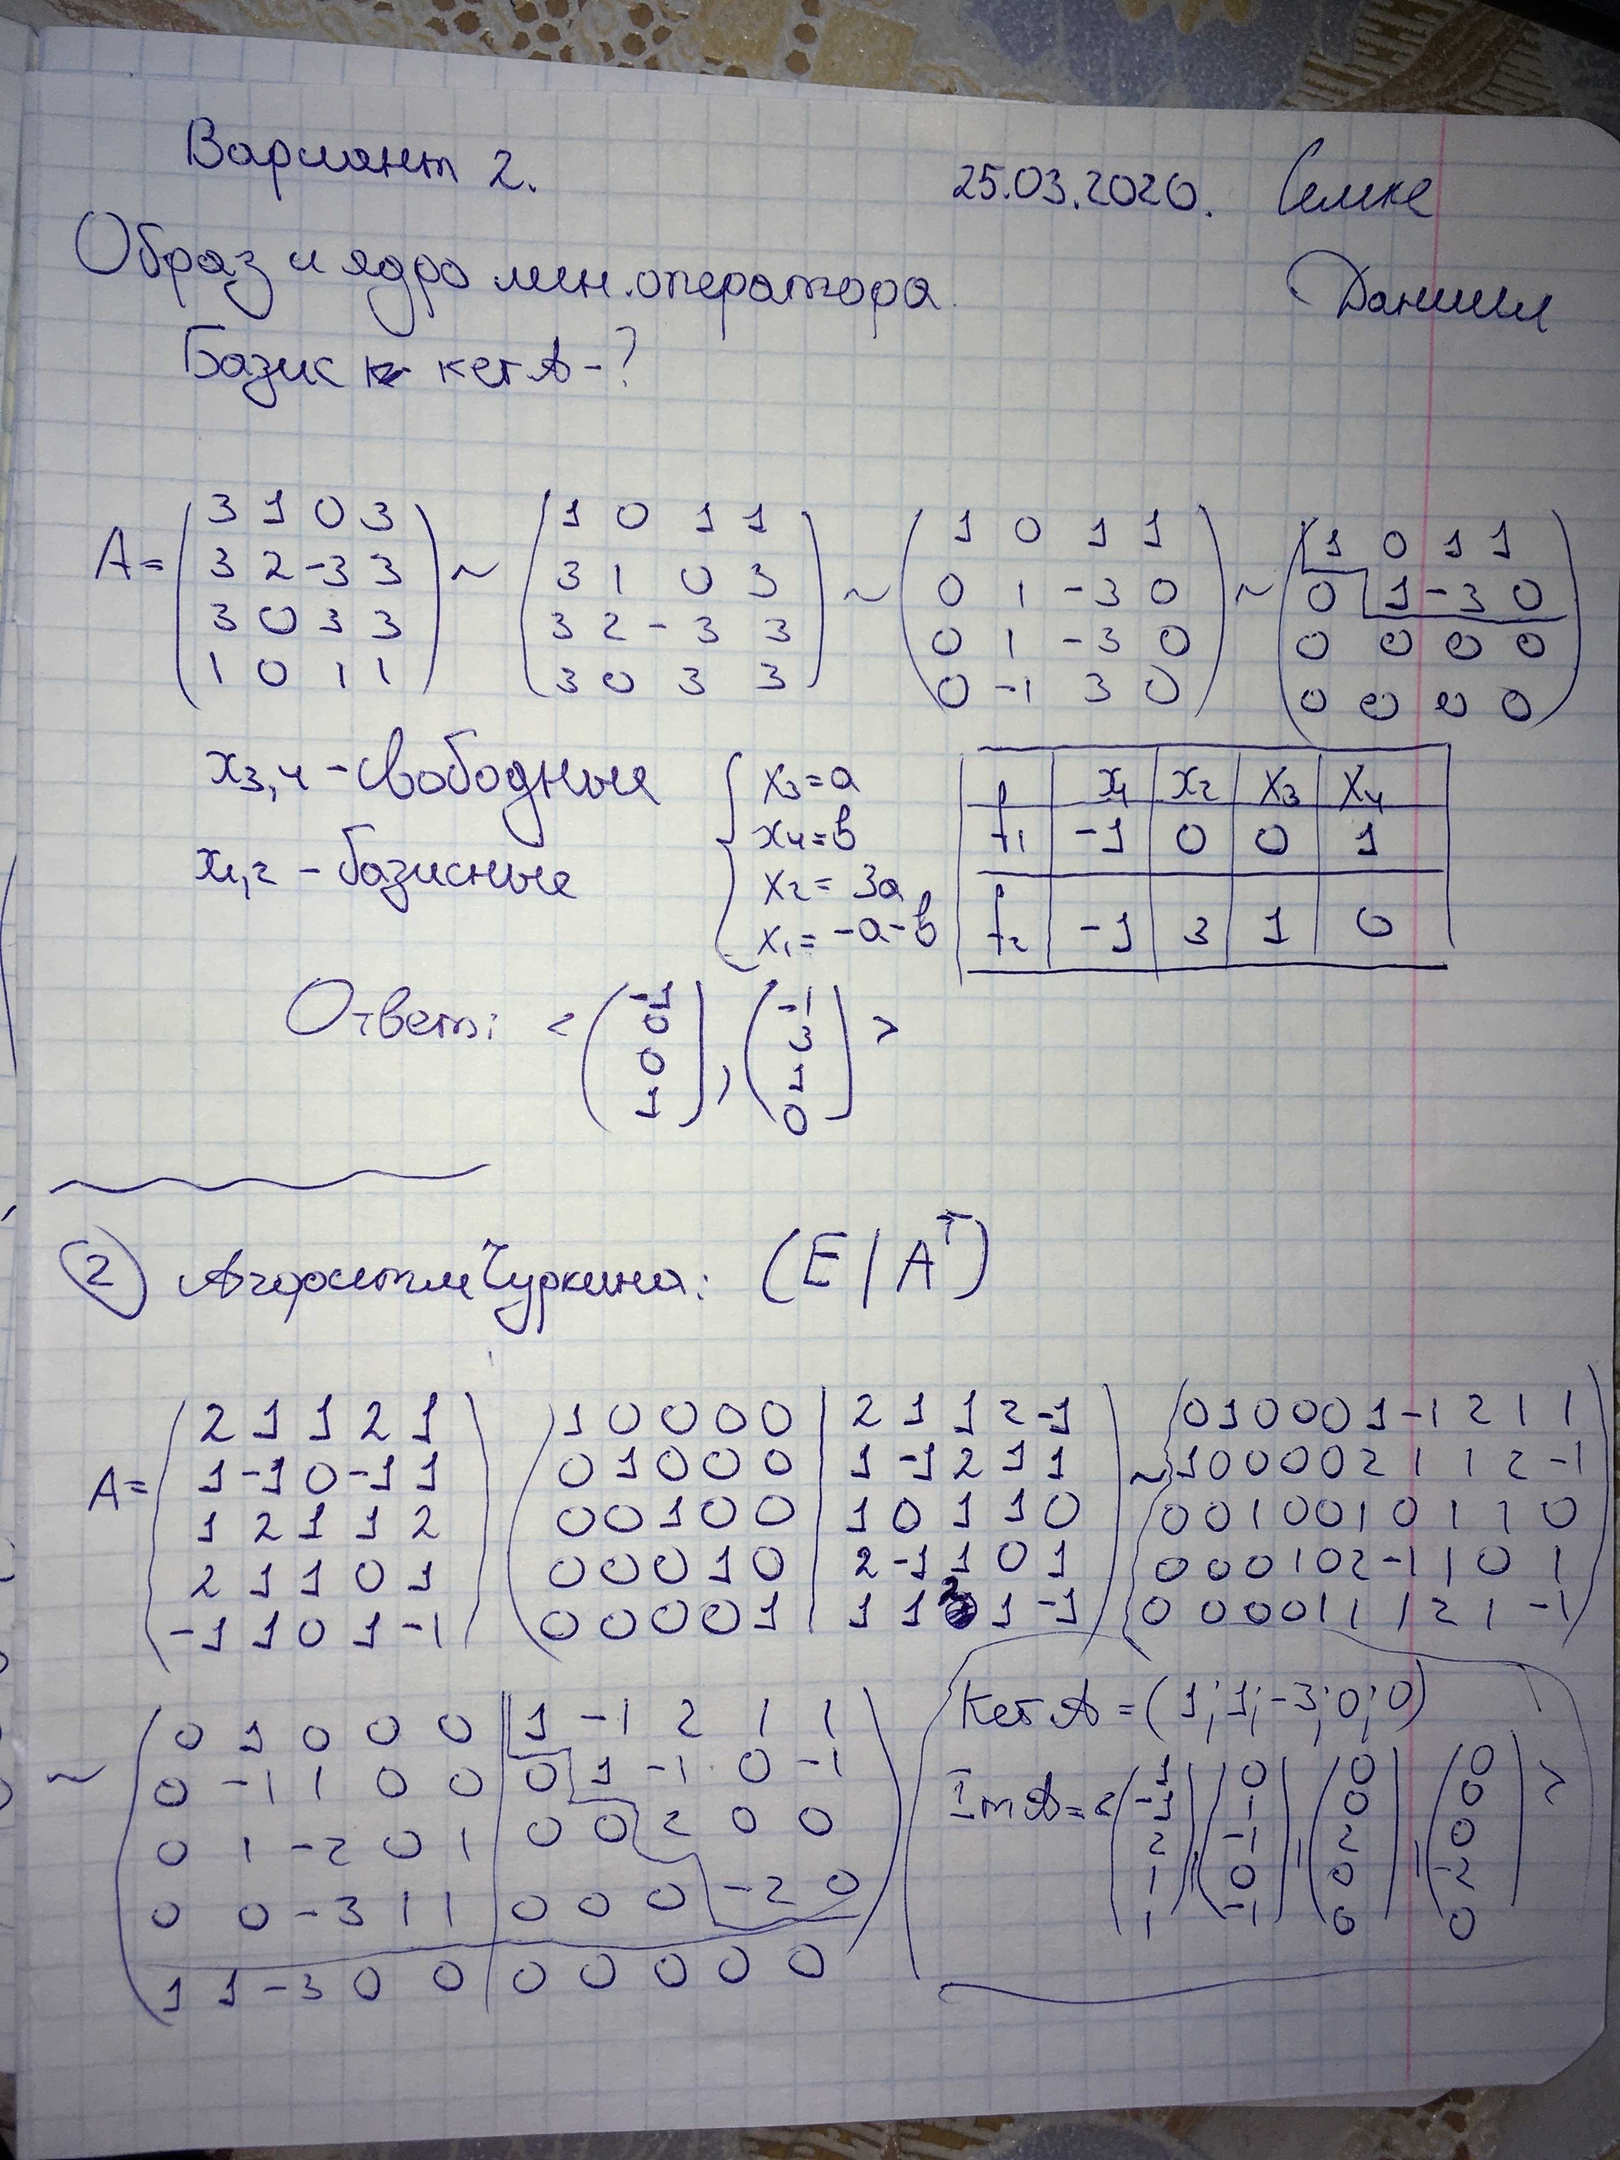 Вариант 2. 25.03.2020. Семке
Образ и ядро лин.оператора Даниил
Базис ker A - ?
A = (3 1 0 3) ~ (1 0 1 1) ~ (1 0 1 1) ~ (1 0 1 1)
(3 2 -3 3) (3 1 0 3) (0 1 -3 0) (0 1 -3 0)
(3 0 3 3) (3 2 -3 3) (0 1 -3 0) (0 0 0 0)
(1 0 1 1) (3 0 3 3) (0 -1 3 0) (0 0 0 0)
x3,4 - свободные
x1,2 - базисные
{ x3 = a
x4 = b
x2 = 3a
x1 = -a-b
f | x1 | x2 | x3 | x4
f1 | -1 | 0 | 0 | 1
f2 | -1 | 3 | 1 | 0
Ответ: < (-1 0 0 1), (-1 3 1 0) >
2 Алгоритм Чуркина: (E | A^T)
A = (2 1 1 2 1) (1 0 0 0 0 | 2 1 1 2 -1) ~ (0 1 0 0 0 1 -1 2 1 1)
(1 -1 0 -1 1) (0 1 0 0 0 | 1 -1 2 1 1) (1 0 0 0 0 2 1 1 2 -1)
(1 2 1 1 2) (0 0 1 0 0 | 1 0 1 1 0) (0 0 1 0 0 1 0 1 1 0)
(2 1 1 0 1) (0 0 0 1 0 | 2 -1 1 0 1) (0 0 0 1 0 2 -1 1 0 1)
(-1 1 0 1 -1) (0 0 0 0 1 | 1 1 2 1 -1) (0 0 0 0 1 1 1 2 1 -1)
~ (0 1 0 0 0 | 1 -1 2 1 1)
(0 -1 1 0 0 | 0 1 -1 0 -1)
(0 1 -2 0 1 | 0 0 2 0 0)
(0 0 -3 1 1 | 0 0 0 -2 0)
(1 1 -3 0 0 | 0 0 0 0 0)
Ker A = (1; 1; -3; 0; 0)
Im A = < (1 -1 2 1 1), (0 1 -1 0 -1), (0 0 2 0 0), (0 0 0 -2 0) >